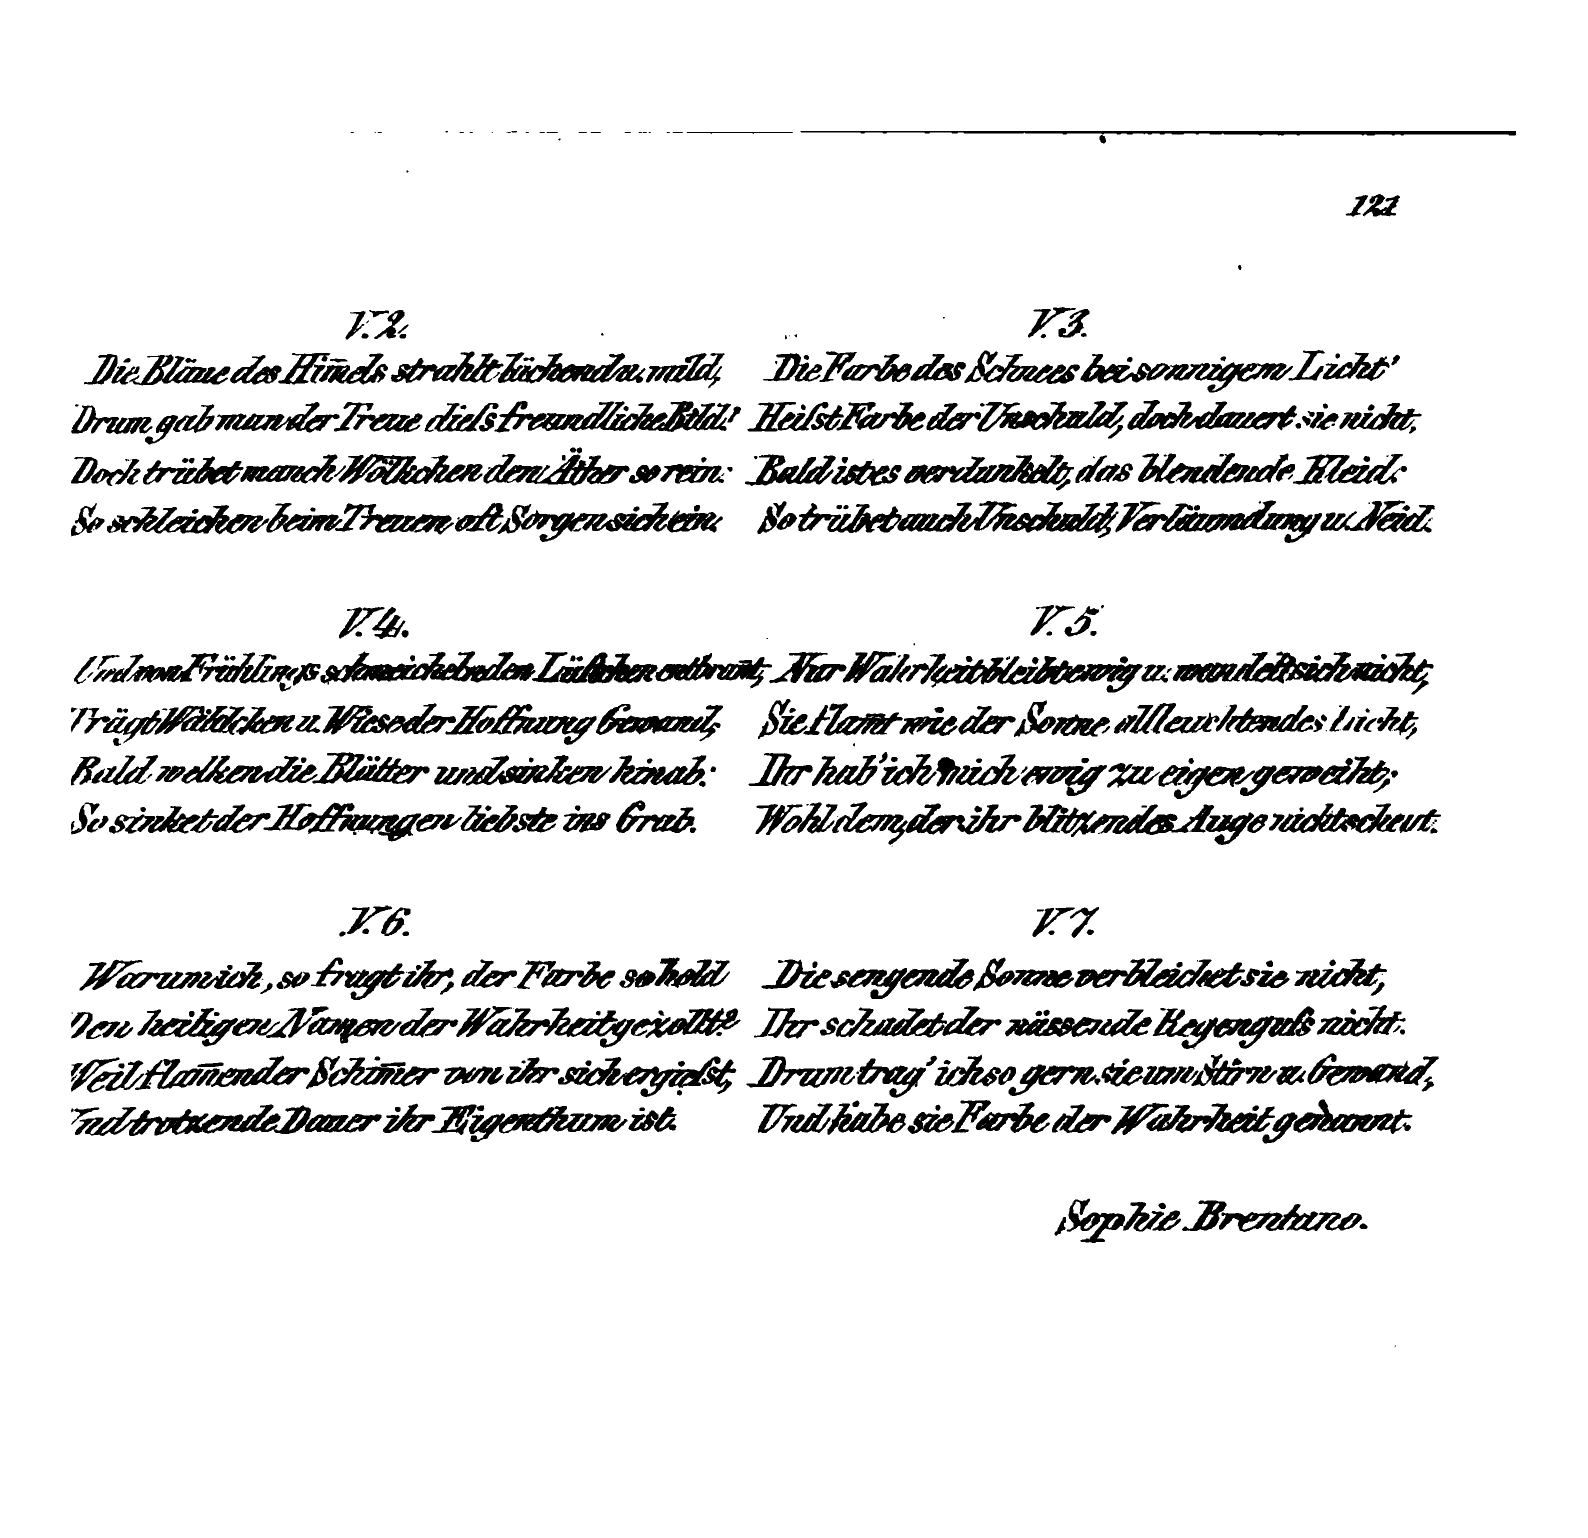 121
V. 2.
Die Bläue des Him̄els strahlt lächend u. mild,
Drum gab man der Treue dieſs freundliche Bild!
Doch trübet manch Wölkchen den Äther so rein:
So schleichen beim Treuen oft Sorgen sich ein.
V. 3.
Die Farbe des Schnees bei sonnigem Licht'
Heiſst Farbe der Unschuld, doch dauert sie nicht.
Bald ist es verdunkelt, das blendende Kleid:
So trübet auch Unschuld, Verläumdung u. Neid.
V. 4.
Und von Frühlings schmeichelnden Lüftchen entbran̄t,
Trägt Wäldchen u. Wiese der Hoffnung Gewand,
Bald welken die Blätter und sinken hinab:
So sinket der Hoffnungen liebste ins Grab.
V. 5.
Nur Wahrheit bleibt ewig u. wandelt sich nicht,
Sie flam̄t wie der Sonne allleuchtendes Licht,
Ihr hab' ich mich ewig zu eigen geweiht;
Wohl dem, der ihr blitzendes Auge nicht scheut.
V. 6.
Warum ich, so fragt ihr, der Farbe so hold
Den heiligen Namen der Wahrheit gezollt?
Weil flam̄ender Schim̄er von ihr sich ergieſst,
Und trotzende Dauer ihr Eigenthum ist.
V. 7.
Die sengende Sonne verbleichet sie nicht,
Ihr schadet der nässende Regenguſs nicht.
Drum trag' ich so gern sie um Stirn u. Gewand,
Und habe sie Farbe der Wahrheit genannt.
Sophie Brentano.